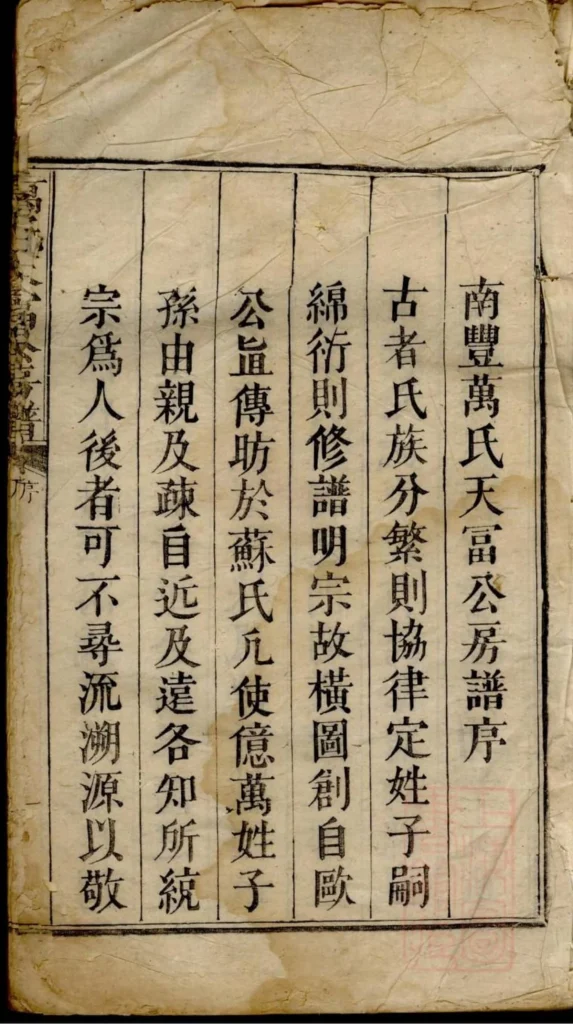 南豐萬氏天冨公房譜序
古者氏族分繁則協律定姓子嗣
綿衍則修譜明宗故橫圖創自歐
公直傳昉於蘇氏凢使億萬姓子
孫由親及疎自近及遠各知所統
宗爲人後者可不尋流溯源以敬